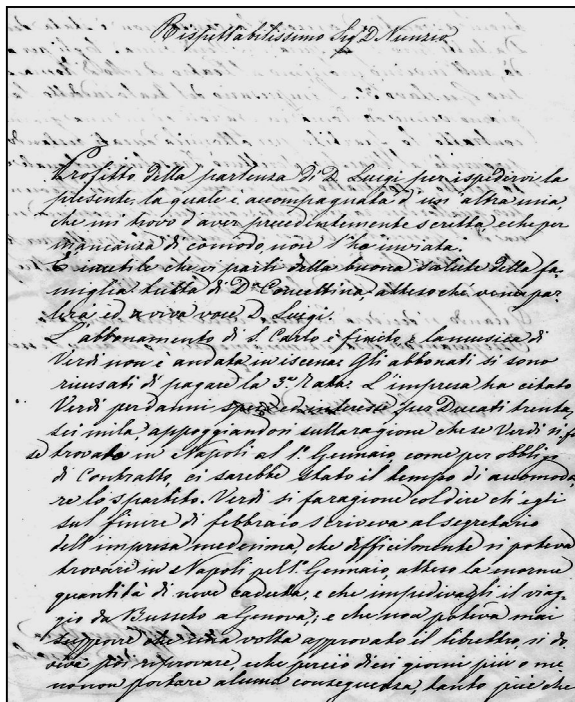 Rispettabilissimo Sigr D. Nunzio
Profitto della partenza di D. Luigi per ispedirvi la
presente, la quale è accompagnata d'un'altra mia
che mi trovo d'aver precedentemente scritta e che per
mancanza di comodo, non l'ho inviata.
È inutile che vi parli della buona salute della fa-
miglia tutta di Da Concettina, atteso che ve ne par-
lerà ed a viva voce D. Luigi.
L'abbonamento di S. Carlo è finito e la musica di
Verdi non è andata in iscena. Gli abbonati si sono
ricusati di pagare la 3a rata. L'impresa ha citato
Verdi per danni spese ed interesse per Ducati trenta
sei mila, appoggiandosi sulla ragione che se Verdi si fos-
se trovato in Napoli al 1o Gennaio, come per obbligo
di Contratto, ci sarebbe stato il tempo di accomoda-
re lo spartito. Verdi si fa ragione col dire che egli
sul finire di febbraio scriveva al segretario
dell'impresa medesima, che difficilmente si poteva
trovare in Napoli pel 1o Gennaio, atteso la enorme
quantità di neve caduta, e che impedivagli il viag-
gio da Busseto a Genova; e che non poteva mai
supporre che una volta approvato il libretto, si do-
veva poi riprovare, e che perciò dieci giorni più o me-
no non portare alcuna conseguenza, tanto più che